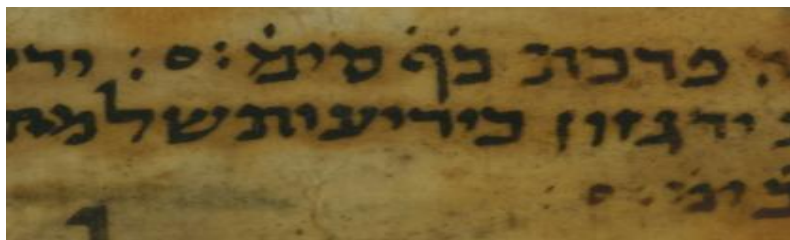 פרכות כ̇ף̇ סימ̇ : ס : ירי
ירגזון כיריעות שלמה
ימ̇ : ס :